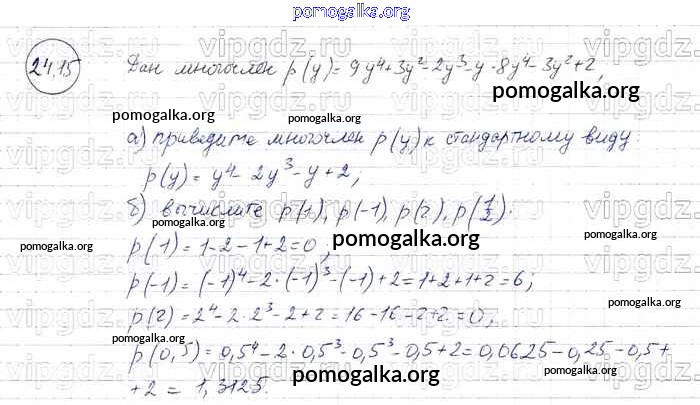 pomogalka.org
24.15
Дан многочлен p(y)=9y⁴+3y²-2y³-y-8y⁴-3y²+2,
pomogalka.org
pomogalka.org
pomogalka.org
а) приведите многочлен p(y) к стандартному виду:
p(y)=y⁴-2y³-y+2;
pomogalka.org
б) вычислите p(1), p(-1), p(2), p(1/2).
pomogalka.org
p(1)=1-2-1+2=0;
pomogalka.org
pomogalka.org
pomogalka.org
p(-1)=(-1)⁴-2·(-1)³-(-1)+2=1+2+1+2=6;
p(2)=2⁴-2·2³-2+2=16-16-2+2=0;
pomogalka.org
p(0,5)=0,5⁴-2·0,5³-0,5³-0,5+2=0,0625-0,25-0,5+
+2=1,3125.
pomogalka.org
pomogalka.org
vipgdz.ru